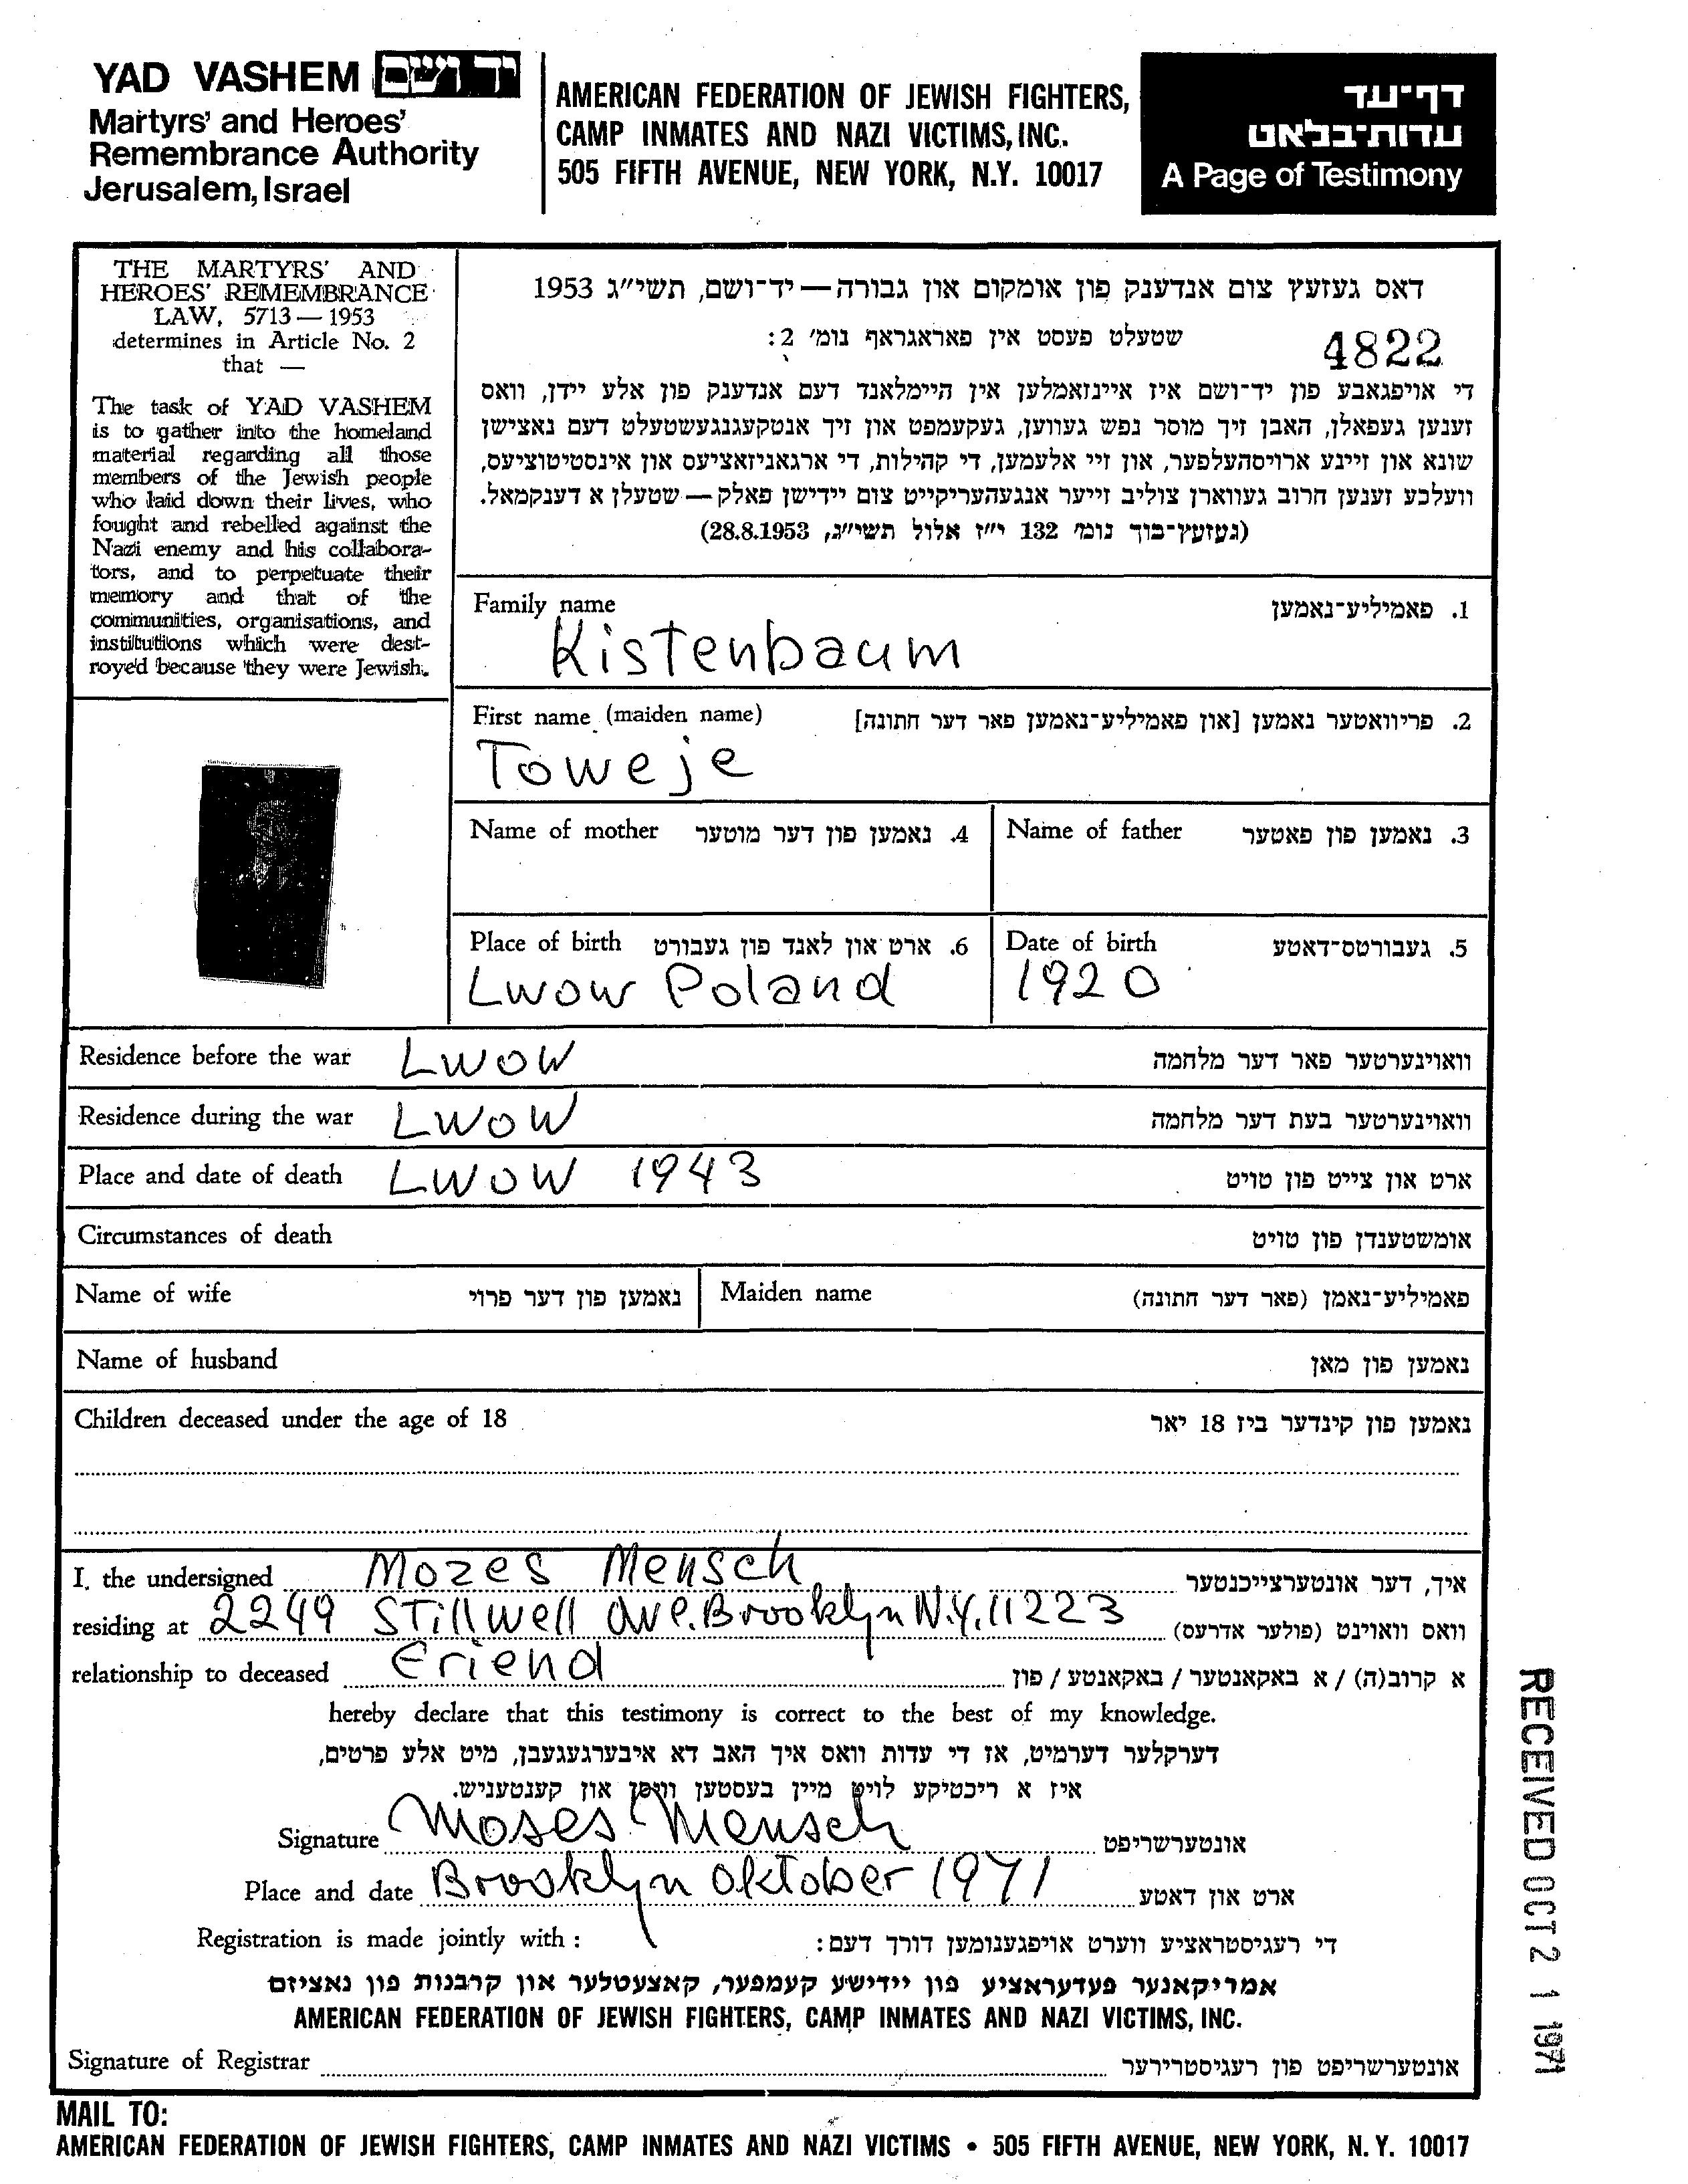 YAD VASHEM יד ושם
Martyrs' and Heroes'
Remembrance Authority
Jerusalem, Israel
AMERICAN FEDERATION OF JEWISH FIGHTERS,
CAMP INMATES AND NAZI VICTIMS, INC.
505 FIFTH AVENUE, NEW YORK, N.Y. 10017
דף-עד
עדות-בלאט
A Page of Testimony
THE MARTYRS' AND
HEROES' REMEMBRANCE
LAW, 5713 — 1953
determines in Article No. 2
that —
The task of YAD VASHEM
is to gather into the homeland
material regarding all those
members of the Jewish people
who laid down their lives, who
fought and rebelled against the
Nazi enemy and his collabora-
tors, and to perpetuate their
memory and that of the
communities, organisations, and
institutions which were dest-
royed because they were Jewish.
דאס געזעץ צום אנדענק פון אומקום און גבורה — יד-ושם, תשי"ג 1953
שטעלט פעסט אין פאראגראף נומ' 2:
4822
די אויפגאבע פון יד-ושם איז איינזאמלען אין היימלאנד דעם אנדענק פון אלע יידן, וואס
זענען געפאלן, האבן זיך מוסר נפש געווען, געקעמפט און זיך אנטקעגנגעשטעלט דעם נאצישן
שונא און זיינע ארויסהעלפער, און זיי אלעמען, די קהילות, די ארגאניזאציעס און אינסטיטוציעס,
וועלכע זענען חרוב געווארן צוליב זייער אנגעהעריקייט צום יידישן פאלק — שטעלן א דענקמאל.
(געזעץ-בוך נומ' 132 י"ז אלול תשי"ג, 28.8.1953)
Family name 1. פאמיליע-נאמען
Kistenbaum
First name (maiden name) 2. פריוואטער נאמען [און פאמיליע-נאמען פאר דער חתונה]
Toweje
Name of mother 4. נאמען פון דער מוטער
Name of father 3. נאמען פון פאטער
Place of birth 6. ארט און לאנד פון געבורט
Lwow Poland
Date of birth 5. געבורטס-דאטע
1920
Residence before the war Lwow וואוינערטער פאר דער מלחמה
Residence during the war Lwow וואוינערטער בעת דער מלחמה
Place and date of death Lwow 1943 ארט און צייט פון טויט
Circumstances of death אומשטענדן פון טויט
Name of wife נאמען פון דער פרוי
Maiden name פאמיליע-נאמן (פאר דער חתונה)
Name of husband נאמען פון מאן
Children deceased under the age of 18 נאמען פון קינדער ביז 18 יאר
I, the undersigned Mozes Mensch איך, דער אונטערצייכנטער
residing at 2249 Stillwell Ave. Brooklyn N.Y. 11223 וואס וואוינט (פולער אדרעס)
relationship to deceased Friend א קרוב(ה) / א באקאנטער / באקאנטע / פון
hereby declare that this testimony is correct to the best of my knowledge.
דערקלער דערמיט, אז די עדות וואס איך האב דא איבערגעגעבן, מיט אלע פרטים,
איז א ריכטיקע לויט מיין בעסטען וויסן און קענטעניש.
Signature Moses Mensch אונטערשריפט
Place and date Brooklyn Oktober 1971 ארט און דאטע
Registration is made jointly with : די רעגיסטראציע ווערט אויפגענומען דורך דעם:
אמריקאנער פעדעראציע פון יידישע קעמפער, קאצעטלער און קרבנות פון נאציזם
AMERICAN FEDERATION OF JEWISH FIGHTERS, CAMP INMATES AND NAZI VICTIMS, INC.
Signature of Registrar אונטערשריפט פון רעגיסטרירער
RECEIVED OCT 21 1971
MAIL TO:
AMERICAN FEDERATION OF JEWISH FIGHTERS, CAMP INMATES AND NAZI VICTIMS • 505 FIFTH AVENUE, NEW YORK, N. Y. 10017